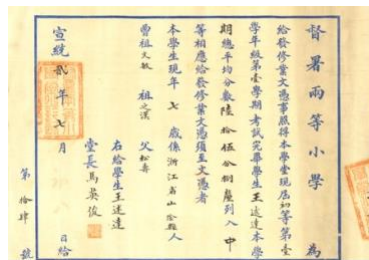 督署兩等小學 為
給發修業文憑事照得本學堂現屆初等第壹
學年級第壹學期考試完畢學生王述達本學
期總平均分數陸拾伍分捌釐列入中
等相應給發修業文憑須至文憑者
本學生現年七歲係浙江省山陰縣人
曾祖文敏 祖之漢 父松壽
右給學生王述達
堂長馬英俊
宣統貳年七月 日給
第拾肆號